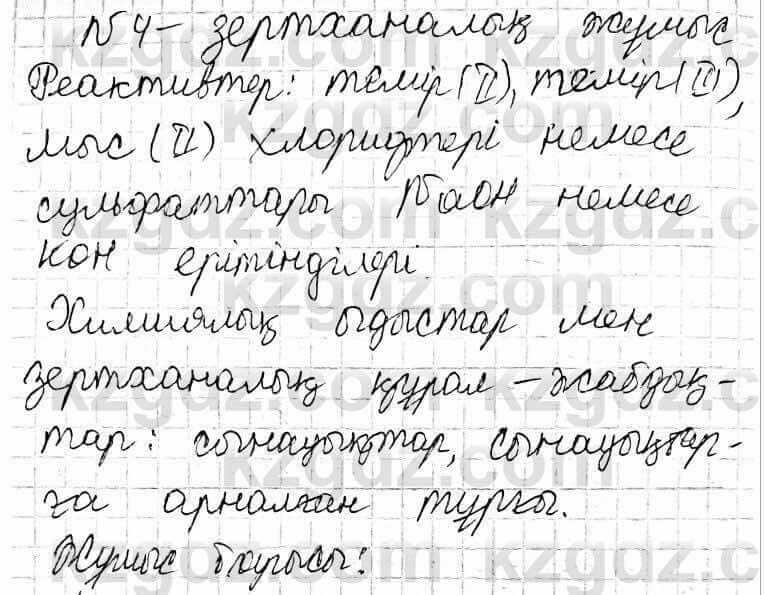 №4 - зертханалық жұмыс
Реактивтер: темір (II), темір (III),
мыс (II) хлоридтері немесе
сульфаттары NaOH немесе
KOH ерітінділері.
Химиялық ыдыстар мен
зертханалық құрал - жабдық-
тар: сынауықтар, сынауықтар-
ға арналған тұрғы.
Жұмыс барысы:
kzgdz.com